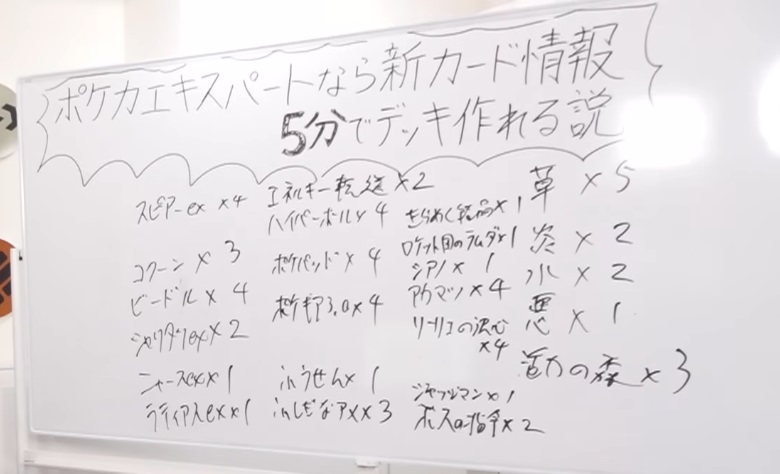 ポケカエキスパートなら新カード情報
5分でデッキ作れる説
スピアーex x4
コクーン x 3
ビードル x 4
シャリタツex x 2
ニャースex x 1
ラティアスex x 1
エネルギー転送 x 2
ハイパーボール x 4
ポケパッド x 4
ポケギア3.0 x 4
ふうせん x 1
ふしぎなアメ x 3
きらめく結晶 x 1
ロケット団のラムダ x 1
シアノ x 1
アカマツ x 4
リーリエの決心
x4
ジャッジマン x 1
ボスの指令 x 2
草 x 5
炎 x 2
水 x 2
悪 x 1
活力の森 x 3